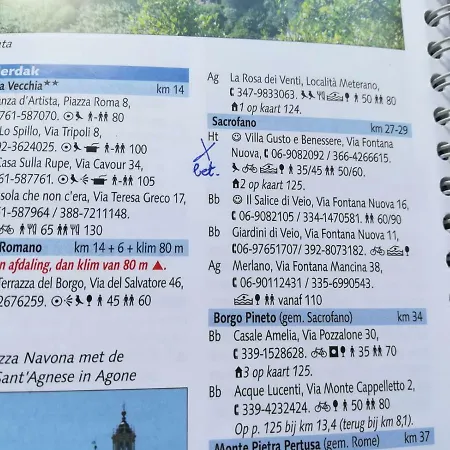 uta
ierdak
a Vecchia** km 14
anza d'Artista, Piazza Roma 8,
761-587070. 80
Lo Spillo, Via Tripoli 8,
92-3624025. 65 100
Casa Sulla Rupe, Via Cavour 34,
761-587761. 105
sola che non c'era, Via Teresa Greco 17,
61-587964 / 388-7211148.
65 130
Romano km 14 + 6 + klim 80 m
n afdaling, dan klim van 80 m ▲.
Terrazza del Borgo, Via del Salvatore 46,
2676259. 45 60
zza Navona met de
Sant'Agnese in Agone
Ag La Rosa dei Venti, Località Meterano,
347-9833063. 50 80
1 op kaart 124.
Sacrofano km 27-29
Ht ☺ Villa Gusto e Benessere, Via Fontana
Nuova, 06-9082092 / 366-4266615.
35/45 50/60.
2 op kaart 125.
X
bet.
Bb ☺ Il Salice di Veio, Via Fontana Nuova 16,
06-9082105 / 334-1470581. 60/90
Bb Giardini di Veio, Via Fontana Nuova 11,
06-97651707/ 392-8073182.
Ag Merlano, Via Fontana Mancina 38,
06-90112431 / 335-6990543.
vanaf 110
Borgo Pineto (gem. Sacrofano) km 34
Bb Casale Amelia, Via Pozzalone 30,
339-1528628. 35 70
3 op kaart 125.
Bb Acque Lucenti, Via Monte Cappelletto 2,
339-4232424. 50 80
Op p. 125 bij km 13,4 (terug bij km 8,1).
Monte Pietra Pertusa (gem. Rome) km 37